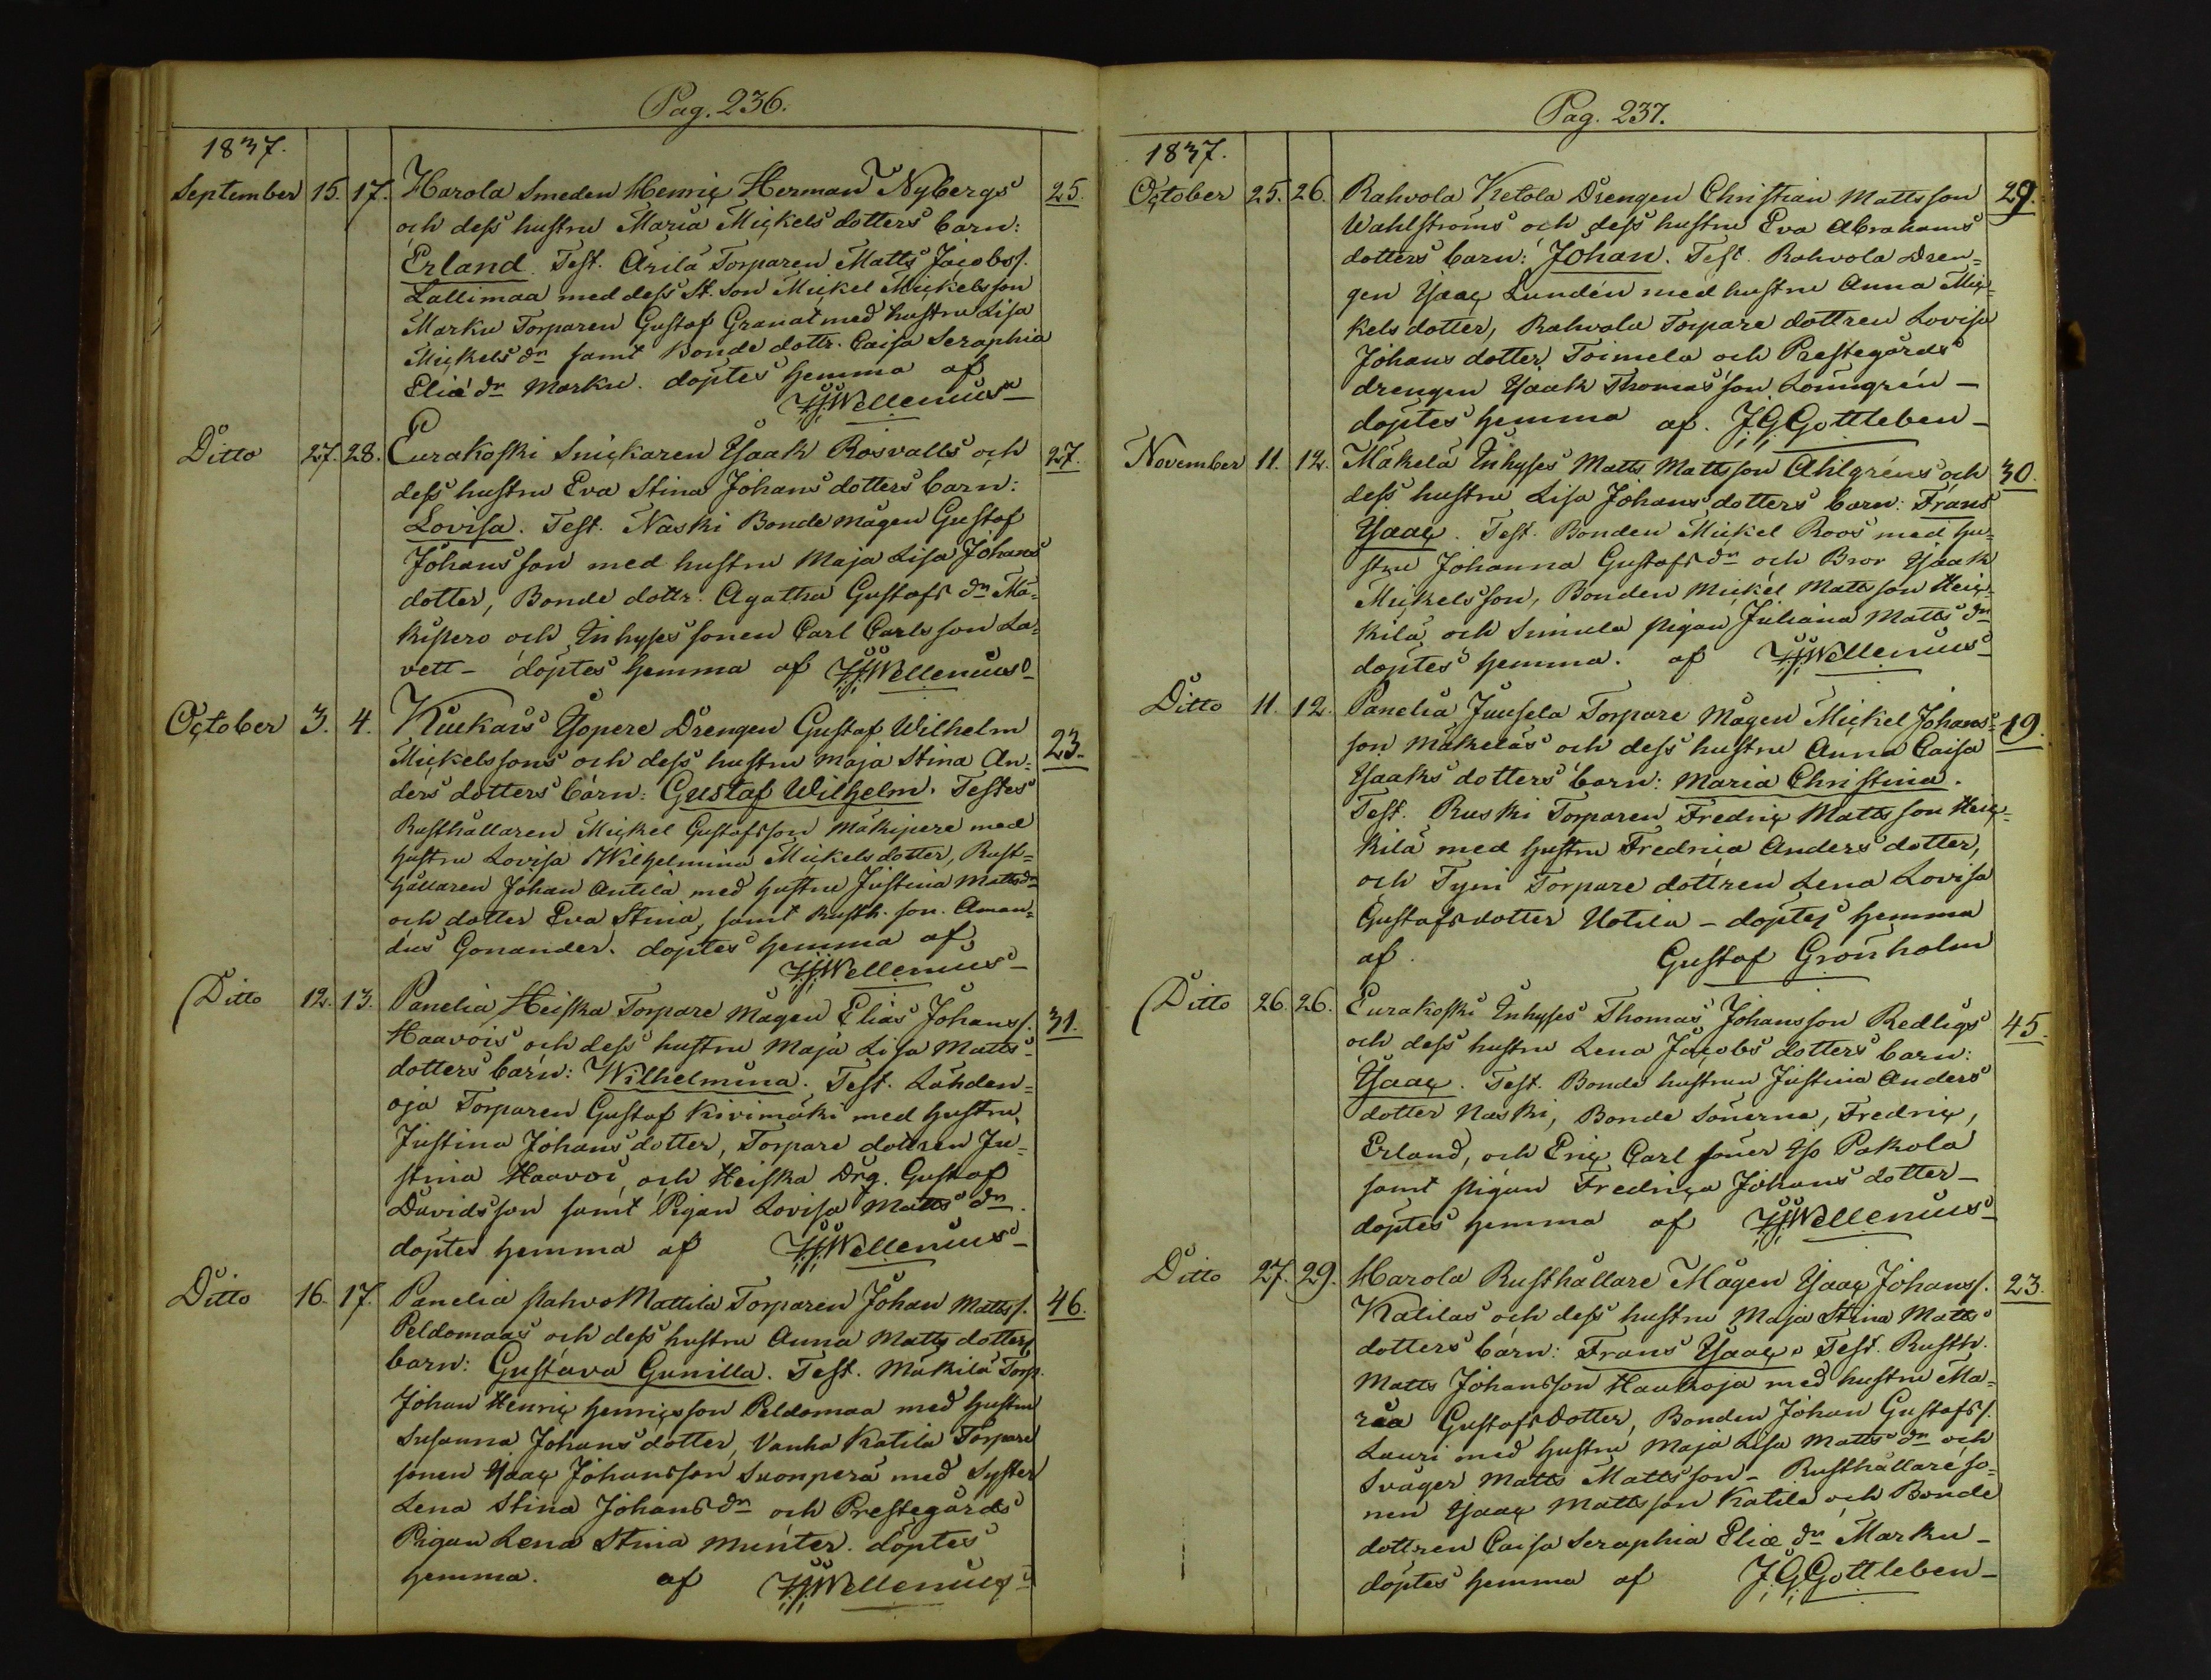 Pag. 236.
1837.
September 15. 17. Harola Smeden Henric Herman Nybergs 25.
och dess hustru Maria Mickels dotters barn:
Erland. Test. Arila Torparen Matts Jacobss.
Lallimaa med dess St. son Mickel Mickelsson
Marku Torparen Gustaf Granat med hustru Lisa
Mickels dr samt Bonde dottr. Caisa Seraphia
Eliæ dr Marku. döptes hemma af
HJWellenius
Ditto 27. 28. Eurakoski Snickaren Ysaak Rosvalls och 27.
dess hustru Eva Stina Johans dotters barn:
Lovisa. Test. Naski Bonde mågen Gustaf
Johansson med hustru Maja Lisa Johans
dotter, Bonde dottr. Agatha Gustafs dr Mä=
kipero och Inhyses sonen Carl Carlsson La=
vett - döptes hemma af HJWellenius
October 3. 4. Kuckais Yspere Drengen Gustaf Wilhelm 23.
Mickelssons och dess hustru Maja Stina An=
ders dotters barn: Gustaf Wilhelm. Testes
Rusthållaren Mickel Gustafsson Mäkipere med
hustru Lovisa Wilhelmina Mickels dotter, Rust=
hållaren Johan Antila med hustru Justina Mattsdr
och dotter Eva Stina, samt Rusth. son. Aman=
dus Gonander. döptes hemma af
HJWellenius
Ditto 12. 13. Panelia Heiska Torpare Mågen Elias Johanss. 31.
Haavois och dess hustru Maja Lisa Matts
dotters barn: Wilhelmina. Test. Lähden=
oja Torparen Gustaf Kivimäki med hustru
Justina Johans dotter, Torpare dottren Ju=
stina Haavoi, och Heiska Drg. Gustaf
Davidsson samt Pigan Lovisa Matts dr.
döptes hemma af HJWellenius
Ditto 16. 17. Panelia pahvo Mattila Torparen Johan Mattss. 46.
Peldomaas och dess hustru Anna Matts dotters
barn: Gustava Gunilla. Test. Mäkilä Torp.
Johan Henric Henricsson Peldomaa med hustru
Susanna Johans dotter, Vanha Katila Torpare
sonen Ysaac Johansson Suonperä med Syster
Lena Stina Johans dr och Prestegårds
Pigan Lena Stina Munter. döptes
hemma. af HJWellenius
Pag. 237.
1837.
October 25. 26. Rahvola Ketola Drengen Christian Mattsson 29.
Wahlstroms och dess hustru Eva Abrahams
dotters barn: Johan. Test. Rahvola Dren=
gen Ysaac Lunden med hustru Anna Mic=
kels dotter, Rahvola Torpare dottren Lovisa
Johans dotter Toimela och Prestegårds
drengen Ysaak Thomas son Lönngren -
döptes hemma af. J.G.Gottleben -
November 11. 12. Mäkelä Inhyses Matts Mattsson Ahlgrens och 30.
dess hustru Lisa Johans dotters barn: Frans
Ysaac. Test. Bonden Mickel Roos med hu=
stru Johanna Gustafs dr och Bror Ysaak
Mickelsson, Bonden Mickel Mattsson Heic=
kilä och Simula pigan Juliana Matts dr
döptes hemma. af HJWellenius
Ditto 11. 12. Panelia Juusela Torpare Mågen Mickel Johans= 19.
son Mäkeläs och dess hustru Anna Caisa
Ysaaks dotters barn: Maria Christina.
Test. Ruski Torparen Fredric Mattsson Heic=
kilä med hustru Fredrica Anders dotter,
och Tyni Torpare dottren Lena Lovisa
Gustafs dotter Uotila - döptes hemma
af. Gustaf Grönholm
Ditto 26. 26. Eurakoski Inhyses Thomas Johansson Redligs 45.
och dess hustru Lena Jacobs dotters barn:
Ysaac. Test. Bonde hustrun Justina Anders
dotter Naski, Bonde sönerna, Fredric,
Erland, och Eric Carl söner Yso Pakola
samt pigan Fredrica Johans dotter -
döptes hemma af HJWellenius
Ditto 27. 29. Harola Rusthållare Mågen Ysaac Johanss. 23.
Katilas och dess hustru Maja Stina Matts
dotters barn: Frans Ysaac. Test. Rusth.
Matts Johansson Haukoja med hustru Ma=
ria Gustafs dotter, Bonden Johan Gustafss.
Lauri med hustru Maja Lisa Matts dr och
Svåger Matts Mattsson - Rusthållare so=
nen Ysaac Mattsson Katila och Bonde
dottren Caisa Seraphia Eliæ dr Marku -
döptes hemma af J.G.Gottleben -